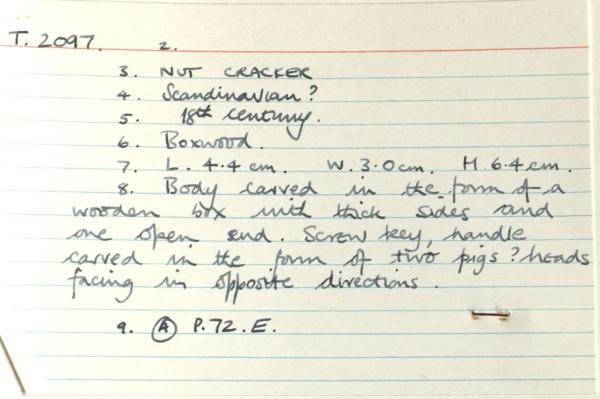 T. 2097. 2.
3. NUT CRACKER
4. Scandinavian?
5. 18th century.
6. Boxwood.
7. L. 4.4 cm. W. 3.0cm. H 6.4 cm.
8. Body carved in the form of a
wooden box with thick sides and
one open end. Screw key, handle
carved in the form of two pigs? heads
facing in opposite directions.
9. A P.72.E.